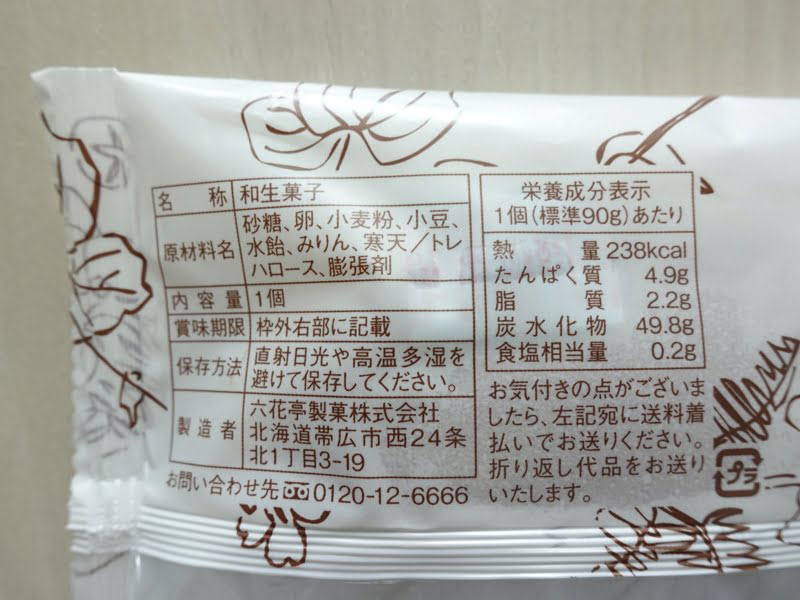 名　称 和生菓子
原材料名 砂糖、卵、小麦粉、小豆、
水飴、みりん、寒天／トレ
ハロース、膨張剤
内容量 1個
賞味期限 枠外右部に記載
保存方法 直射日光や高温多湿を
避けて保存してください。
製造者 六花亭製菓株式会社
北海道帯広市西24条
北1丁目3-19
お問い合わせ先 0120-12-6666
栄養成分表示
1個(標準90g)あたり
熱　量 238kcal
たんぱく質 4.9g
脂　質 2.2g
炭水化物 49.8g
食塩相当量 0.2g
お気付きの点がございま
したら、左記宛に送料着
払いでお送りください。
折り返し代品をお送り
いたします。
プラ